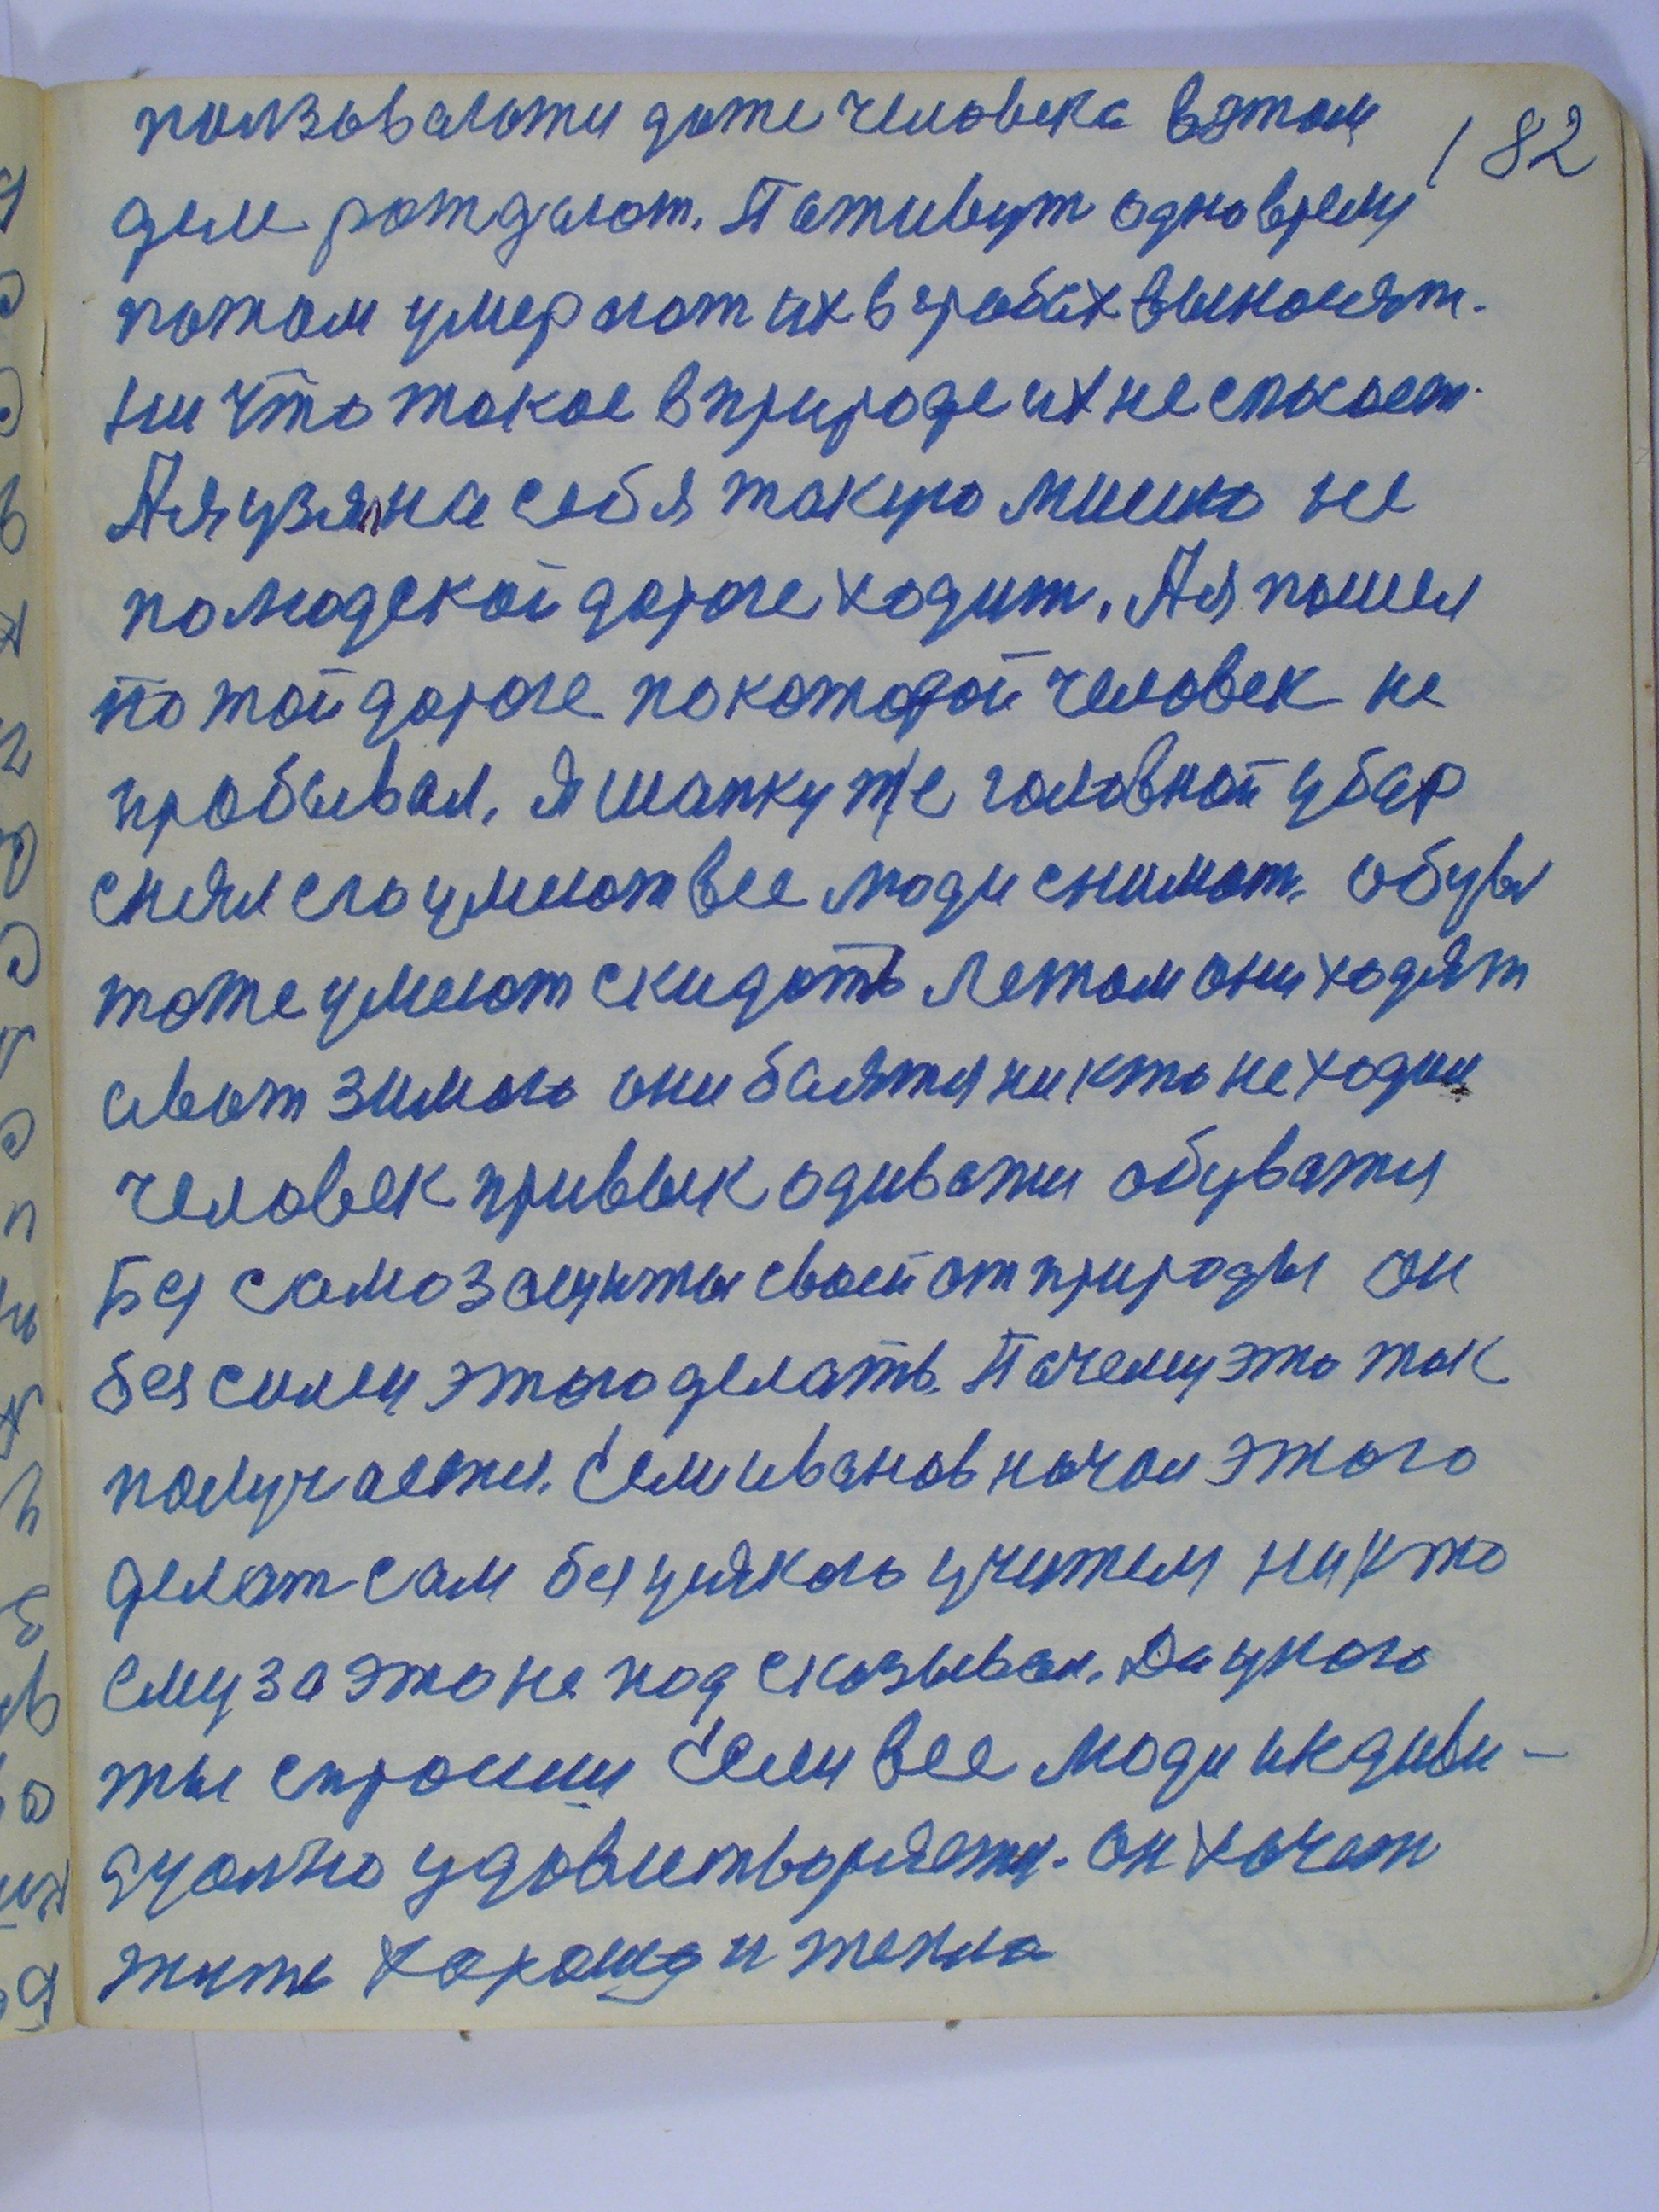 182
ползываюти даже человека вэтом
деле рождают. Паживут одно время
потом умерают их в гробах выносят.
Ни что такое в природе их не спасает.
А я узял на себя такую мисию не
по людской дороге ходит. А я пошел
по той дороге по которой человек не
пробывал. Я шапку же головной убор
снял его умеют все люди снимат. обувь
тоже умеют скидать Летом они ходят
а вот зимою они баятся никто не ходил
человек привык одиватся обуватся
Без самозащиты своей от природы он
без силен этого делать. Почему это так
получается. Если Иванов начал этого
делат сам без усякого учителя никто
ему за это не подсказывал. Да у кого
ты спросиш Если все люди индиви-
дуально удовлетворяются. он хочет
жить хорошо и тепло